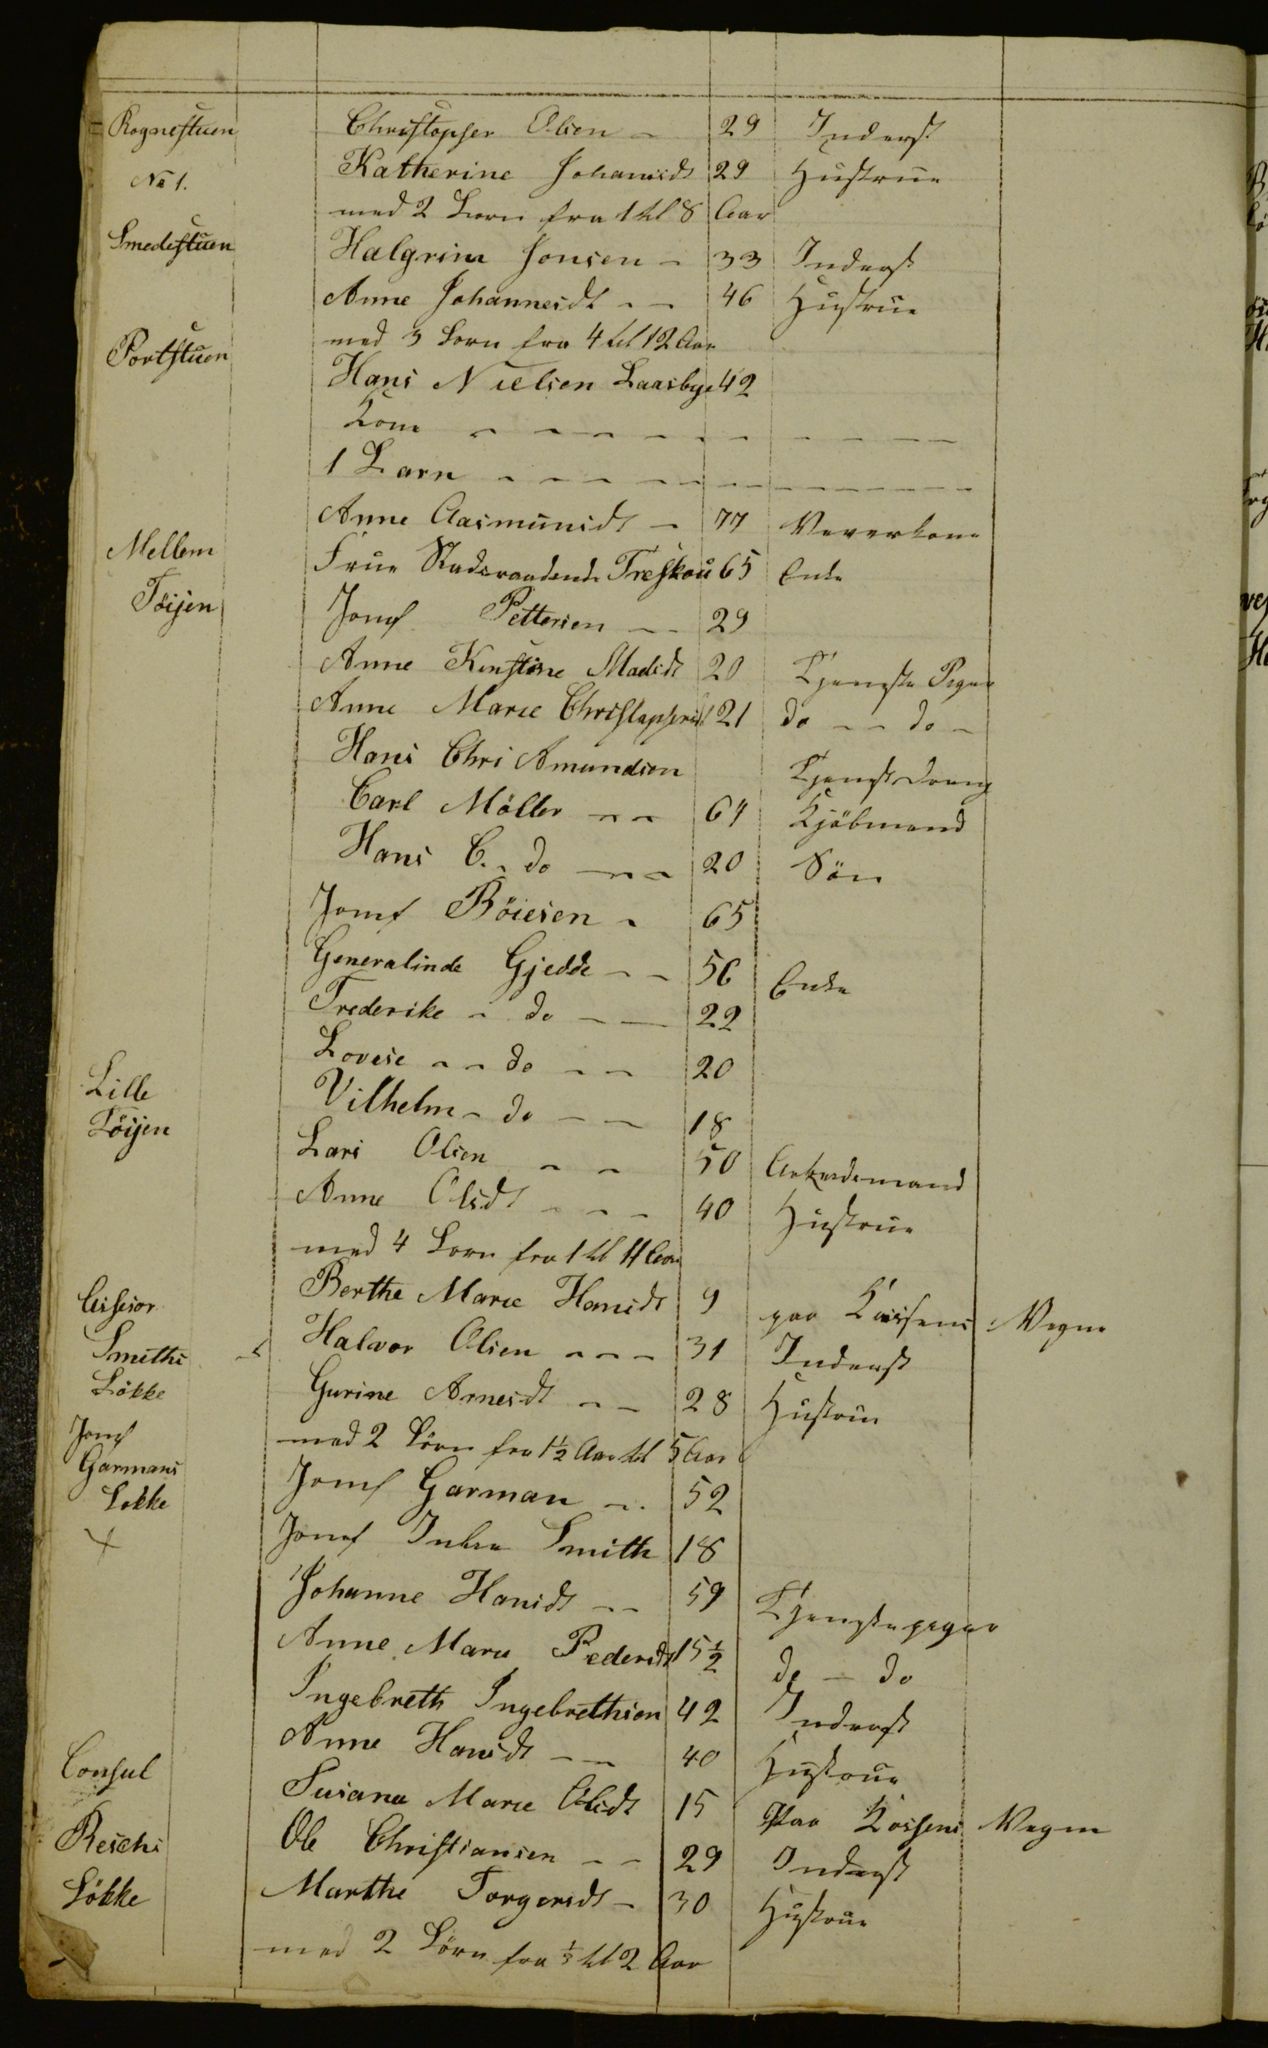 Rognestuen Christopher Olsen - 29 Inderst
No 1. Katherine Johannsdt 29 Hustrue
med 2 Börn fra 1 til 8 Aar
Smedestuen Halgrim Jonsen - 33 Inderst
Anne Johannesdt - - 46 Hustrue
med 3 Börn fra 4 til 12 Aar
Portstuen Hans Nielsen Laasbye 42
Kone - - - - - - - - -
1 Barn - - - - - - - - -
Anne Aasmunsdt - 77 Væverkone
Mellem Frue Stadsraadinde Treschou 65 Enke
Töijen Jomf Pettersen - - 29
Anne Kirstine Madsdt 20 Tjeneste Piger
Anne Marie Christophersdt 21 do - - do -
Hans Chri Amundsen Tjenestdreng
Carl Möller - - 64 Kjöbmand
Hans C. - do - - - 20 Sön
Jomf Böiesen - 65
Generalinde Gjedde - - 56 Enke
Frederike - do - - 22
Lovise - - do - - 20
Lille Vilhelm - do - - 18
Töijen Lars Olsen - - 50 Arbeidsmand
Anne Olsdt - - - 40 Hustrue
med 4 Börn fra 1 til 11 Aar
Assesor Berthe Marie Hansdt 9 paa Kassens Vegne
Smiths Halvor Olsen - - - 31 Inderst
Lökke Gurine Arnesdt - - 28 Hustrue
med 2 Börn fra 1½ Aar til 5 Aar
Jomf
Garmans Jomf Garman - . 52
Lökke
Jomf Smith 18
Johanne Hansdt - - 59 Tjenestepiger
Anne Marie Pedersdt 15½ do - do
Ingebreth Ingebrethsen 42 Inderst
Anne Hansdt - - 40 Hustrue
Consul Susana Marie Olsdt 15 Paa Kassens Vegne
Reschs Ole Christiansen - - 29 Inderst
Lökke Marthe Torgersdt - 30 Hustrue
med 2 Börn fra ½ til 2 Aar